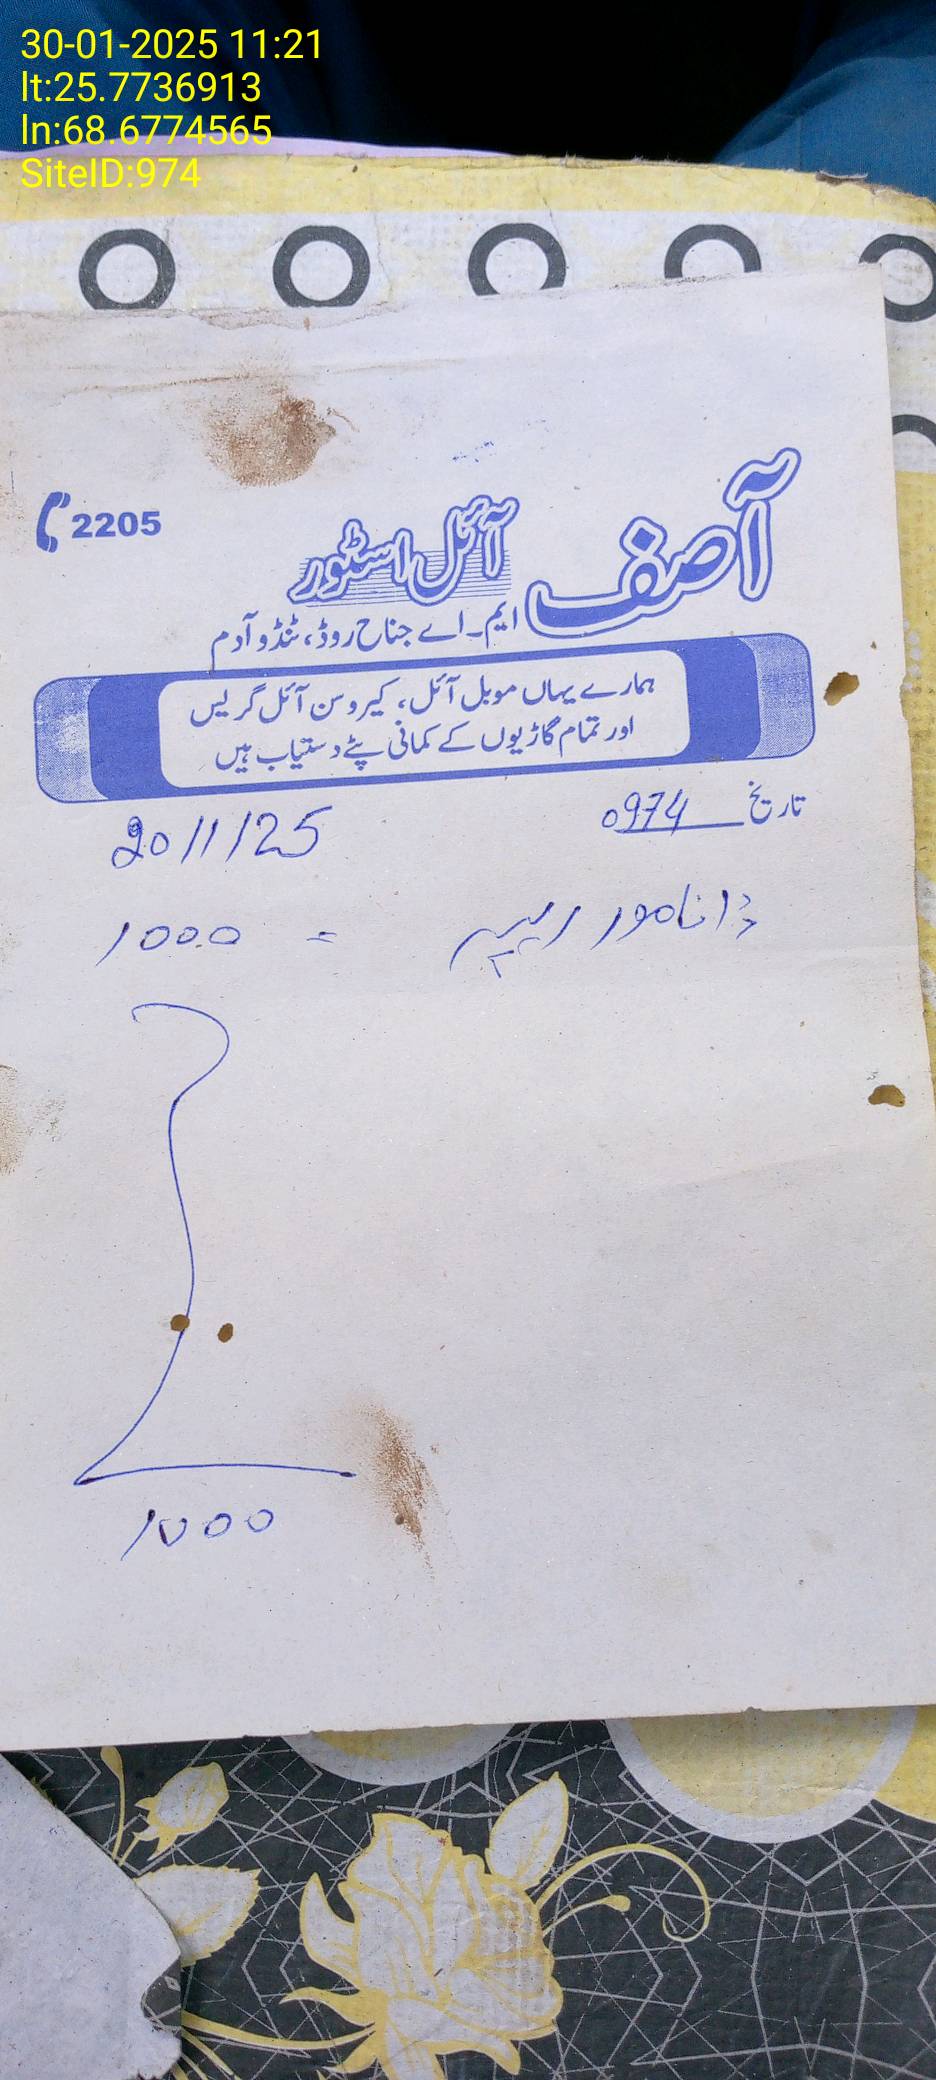 30-01-2025 11:21
lt:25.7736913
ln:68.6774565
SiteID:974
2205
آصف آئل اسٹور
ایم۔اے جناح روڈ، ٹنڈو آدم
ہمارے یہاں موبل آئل، کیروسن آئل گریس
اور تمام گاڑیوں کے کمانی پٹے دستیاب ہیں
تاریخ 0974
20/1/25
1000 =
1000